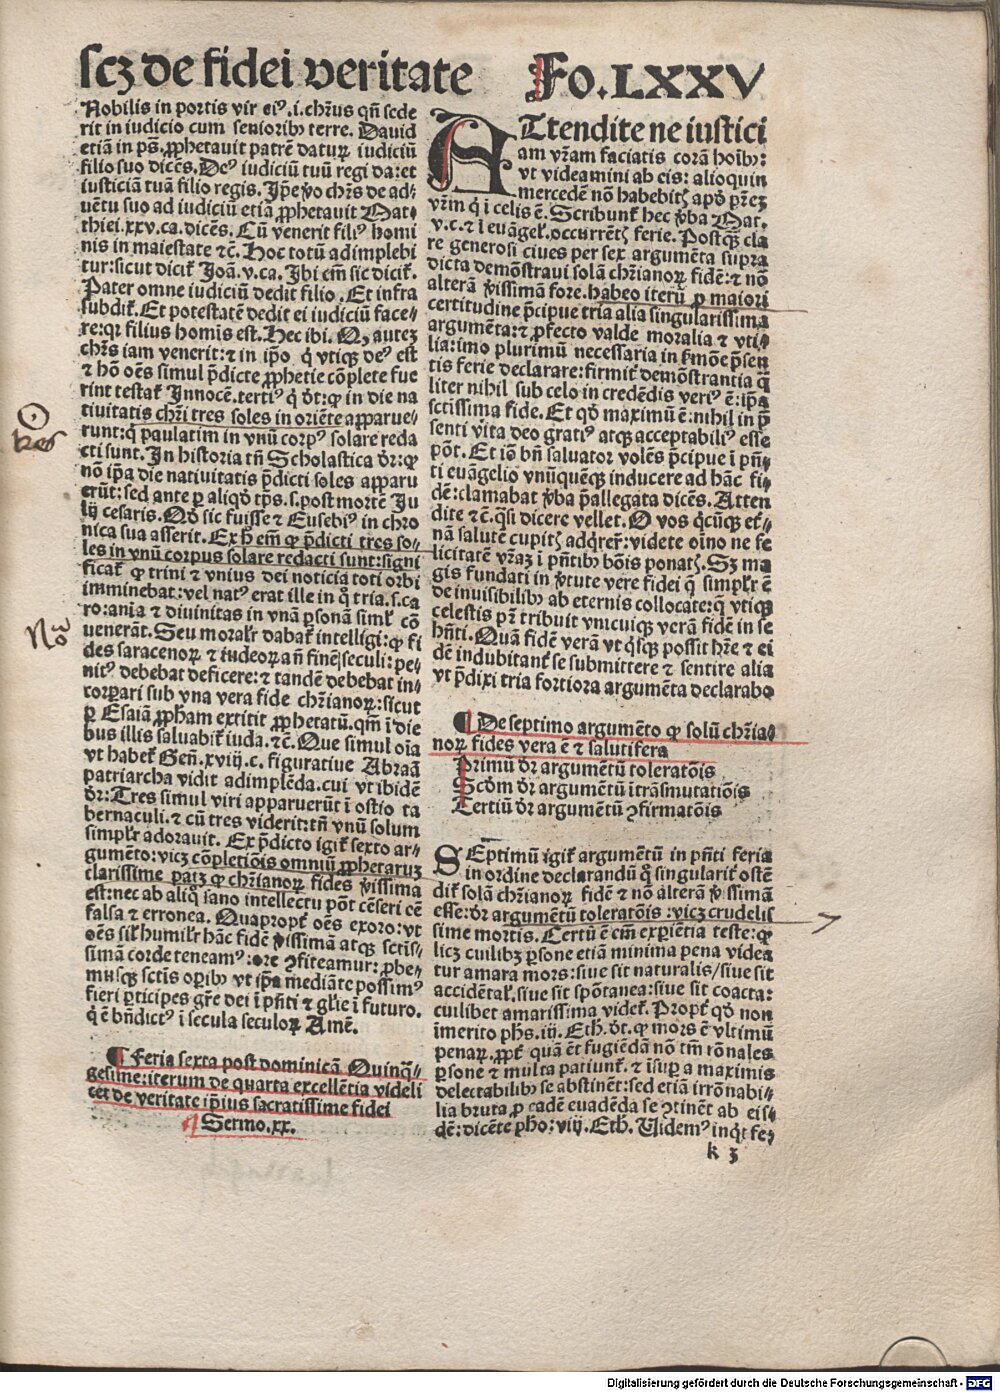 scz de fidei veritate Fo.LXXV
Nobilis in portis vir ei⁹.i.chr̃us qñ sede
rit in iudicio cum seniorib⁹ terre. Dauid
etiã in ps̃. ꝓphetauit patrẽ daturꝝ iudiciũ
filio suo dicẽs. De⁹ iudiciũ tuũ regi da: et
iusticiã tuã filio regis. Ip̃e ṽo chr̃s de ad⸗
uẽtu suo ad iudiciũ etiã ꝓphetauit Mat⸗
thiei.xxv.ca. dicẽs. Cũ venerit fili⁹ homi
nis in maiestate ⁊c̃. Hoc totũ adimplebi
tur: sicut dicit̃ Joã.v.ca. Ibi em̃ sic dicit̃.
Pater omne iudiciũ dedit filio. Et infra
subdit̃. Et potestatẽ dedit ei iudiciũ face⸗
re: qꝛ filius homĩs est. Hec ibi. Q, autez
chr̃s iam venerit: ⁊ in ip̃o q̇ vtiqꝫ de⁹ est
⁊ hõ oẽs simul p̃dicte ꝓphetie cõplete fue
rint testat̃ Innocẽ. terti⁹ q̇ dt̃: ꝙ in die na
tiuitatis chr̃i tres soles in oriẽte apparue⸗
runt: q̇ paulatim in vnũ corp⁹ solare reda
cti sunt. In historia tñ Scholastica dr̃: ꝙ
nõ ip̃a die natiuitatis p̃dicti soles apparu
erũt: sed ante ꝑ aliqd̃ tp̃s.s. post mortẽ Ju
lij cesaris. Qd̃ sic fuisse ⁊ Eusebi⁹ in chro
nica sua asserit. Ex h̃ em̃ ꝙ p̃dicti tres so⸗
les in vnũ corpus solare redacti sunt: signi
ficat̃ ꝙ trini ⁊ vnius dei noticia toti orbi
imminebat: vel nat⁹ erat ille in q̇ tria.s. ca
ro: anĩa ⁊ diuinitas in vnã ꝑsonã siml̃ cõ
uenerãt. Seu moralr̃ dabat̃ intelligi: ꝙ fi
des saracenoꝝ ⁊ iudeoꝝ añ finẽ seculi: pe⸗
nit⁹ debebat deficere: ⁊ tandẽ debebat in⸗
corꝑari sub vna vera fide chr̃ianoꝝ: sicut
ꝑ Esaiã ꝓpham extitit ꝓphetatũ. qm̃ ĩ die
bus illis saluabit̃ iuda.⁊c̃. Que simul oĩa
vt habet̃ Geñ.xviij.c. figuratiue Abraã
patriarcha vidit adimplẽda. cui vt ibidẽ
dr̃: Tres simul viri apparuerũt ĩ ostio ta
bernaculi. ⁊ cũ tres viderit: tñ vnũ solum
simplr̃ adorauit. Ex p̃dicto igit̃ sexto ar⸗
gumẽto: vicz cõpletiõis omniũ ꝓphetaruꝫ
clarissime patꝫ ꝙ chr̃ianoꝝ fides ṽissima
est: nec ab aliq̇ sano intellectu põt cẽseri cẽ
falsa ⁊ erronea. Quapropt̃ oẽs exoro: vt
oẽs sil̃ humilr̃ hãc fidẽ ṽissimã atqꝫ sctĩs⸗
simã corde teneam⁹: ore ꝯfiteamur: ꝓbe⸗
musqꝫ sctĩs oꝑib⁹ vt ip̃a mediãte possim⁹
fieri ꝑticipes gr̃e dei ĩ pñti ⁊ gl̃ie ĩ futuro.
q̇ ẽ bñdict⁹ ĩ secula seculoꝝ Amẽ.
¶ Feria sexta post dominicã Quinq̃⸗
gesime: iterum de quarta excellẽtia videli
cet de veritate ip̃ius sacratissime fidei
Sermo.xx.
ATtendite ne iustici
am vr̃am faciatis corã hoĩb⁹:
vt videamini ab eis: alioquin
mercedẽ nõ habebitꝭ apd̃ pr̃eꝫ
vr̃m q̇ ĩ celis ẽ. Scribunt̃ hec ṽba Mat.
v.c. ⁊ ĩ euãgel̃. occurrẽtꝭ ferie. Postqꝫ̃ cla
re generosi ciues per sex argumẽta supra
dicta demõstraui solã chr̃ianoꝝ fidẽ: ⁊ nõ
alterã ṽissimã fore. habeo iterũ ꝑ maiori
certitudine p̃cipue tria alia singularissima
argumẽta: ⁊ ꝓfecto valde moralia ⁊ vti⸗
lia: imo plurimũ necessaria in ẜmõe p̃sen
tis ferie declarare: firmit̃ demõstrantia q̃
liter nihil sub celo in credẽdis veri⁹ ẽ: ip̃a
sctĩssima fide. Et qd̃ maximũ ẽ: nihil in p̃
senti vita deo grati⁹ atqꝫ acceptabili⁹ esse
põt. Et iõ bñ saluator volẽs p̃cipue ĩ pñ⸗
ti euãgelio vnũquẽqꝫ inducere ad hãc fi⸗
dẽ: clamabat ṽba p̃allegata dicẽs. Atten
dite ⁊c̃. q̃si dicere vellet. O vos q̇cũqꝫ et̃⸗
nã salutẽ cupitꝭ adq̇rer̃: videte oĩno ne fe
licitatẽ vr̃aꝫ ĩ pñtib⁹ bõis ponatꝭ. Sꝫ ma
gis fundati in ṽtute vere fidei q̃ simplr̃ ẽ
de inuisibilib⁹ ab eternis collocate: q̃ vtiqꝫ
celestis pr̃ tribuit vnicuiqꝫ verã fidẽ in se
hñti. Quã fidẽ verã vt q̇sqꝫ possit hr̃e ⁊ ei
dẽ indubitant̃ se submittere ⁊ sentire alia
vt p̃dixi tria fortiora argumẽta declarabo
¶ De septimo argumẽto ꝙ solũ chr̃ia⸗
noꝝ fides vera ẽ ⁊ salutifera
Primũ dr̃ argumẽtũ toleratõis
Scdm̃ dr̃ argumẽtũ itrãsmutatiõis
Tertiũ dr̃ argumẽtũ ꝯfirmatõis
SEptimũ igit̃ argumẽtũ in pñti feria
in ordine declarandũ q̇ singularit̃ ostẽ
dit̃ solã chr̃ianoꝝ fidẽ ⁊ nõ alterã ṽissimã
esse: dr̃ argumẽtũ toleratõis: vicz crudelis
sime mortis. Certũ ẽ em̃ exꝑiẽtia teste: ꝙ
licꝫ cuilibꝫ ꝑsone etiã minima pena videa
tur amara mors: siue sit naturalis/siue sit
accidẽtal̃. siue sit spõtanea: siue sit coacta:
cuilibet amarissima videt̃. Propt̃ qd̃ non
ĩmerito ph̃s.iij. Eth̃. dt̃. ꝙ mors ẽ vltimũ
penaꝝ. ꝓpt̃ quã et̃ fugiẽdã nõ tm̃ rõnales
ꝑsone ⁊ multa patiunt̃. ⁊ ĩsuꝑ a maximis
delectabilib⁹ se abstinẽt: sed etiã irrõnabi⸗
lia bruta ꝓ eadẽ euadẽda se ꝯtinẽt ab eis⸗
dẽ: dicẽte ph̃o: viij. Eth̃. Uidem⁹ inq̇t fe⸗
k 3
Digitalisierung gefördert durch die Deutsche Forschungsgemeinschaft - DFG